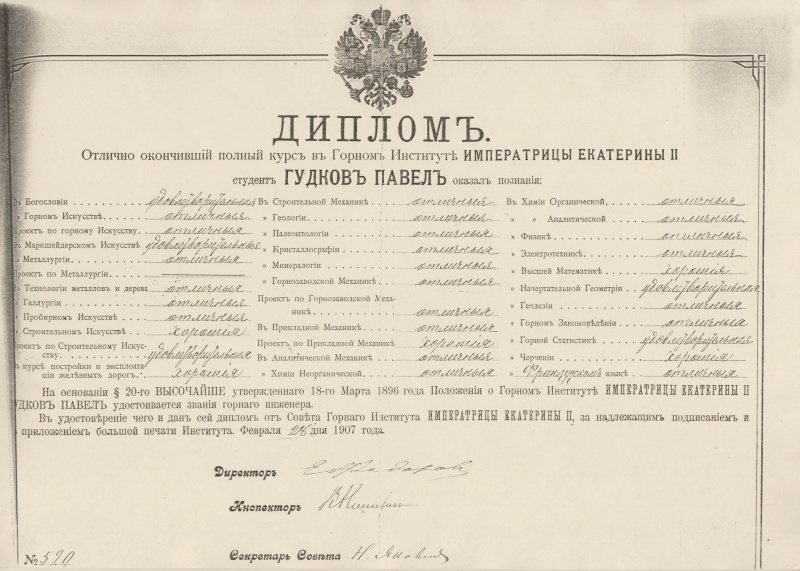 ДИПЛОМЪ.
Отлично окончившій полный курсъ въ Горномъ Институтѣ ИМПЕРАТРИЦЫ ЕКАТЕРИНЫ II
студентъ ГУДКОВЪ ПАВЕЛЪ оказалъ познанія:
Въ Богословіи удовлетворительныя
» Горномъ Искусствѣ отличныя
Проектъ по горному Искусству отличныя
Въ Маркшейдерскомъ Искусствѣ удовлетворительныя
» Металлургіи отличныя
Проектъ по Металлургіи
Въ Технологіи металловъ и дерева отличныя
» Галлургіи отличныя
» Пробирномъ Искусствѣ отличныя
» Строительномъ Искусствѣ хорошія
Проектъ по Строительному Искус-
ству. удовлетворительныя
Въ курсѣ постройки и эксплоата-
ціи желѣзныхъ дорогъ. хорошія
Въ Строительной Механикѣ отличныя
» Геологіи отличныя
» Палеонтологіи отличныя
» Кристаллографіи отличныя
» Минералогіи отличныя
» Горнозаводской Механикѣ отличныя
Проектъ по Горнозаводской Меха-
никѣ отличныя
Въ Прикладной Механикѣ отличныя
Проектъ по Прикладной Механикѣ хорошія
Въ Аналитической Механикѣ отличныя
» Химіи Неорганической отличныя
Въ Химіи Органической отличныя
» » Аналитической отличныя
» Физикѣ отличныя
» Электротехникѣ отличныя
» Высшей Математикѣ хорошія
» Начертательной Геометріи удовлетворительныя
» Геодезіи отличныя
» Горномъ Законовѣдѣніи отличныя
» Горной Статистикѣ удовлетворительныя
» Черченіи хорошія
» Французскомъ языкѣ отличныя
На основаніи § 20-го ВЫСОЧАЙШЕ утвержденнаго 18-го Марта 1896 года Положенія о Горномъ Институтѣ ИМПЕРАТРИЦЫ ЕКАТЕРИНЫ II
ГУДКОВЪ ПАВЕЛЪ удостоивается званія горнаго инженера.
Въ удостовѣреніе чего и данъ сей дипломъ отъ Совѣта Горнаго Института ИМПЕРАТРИЦЫ ЕКАТЕРИНЫ II, за надлежащимъ подписаніемъ и
приложеніемъ большой печати Института. Февраля 28 дня 1907 года.
Директоръ Е Федоровъ
Инспекторъ
Секретарь Совѣта Н. Яковлевъ
№ 520